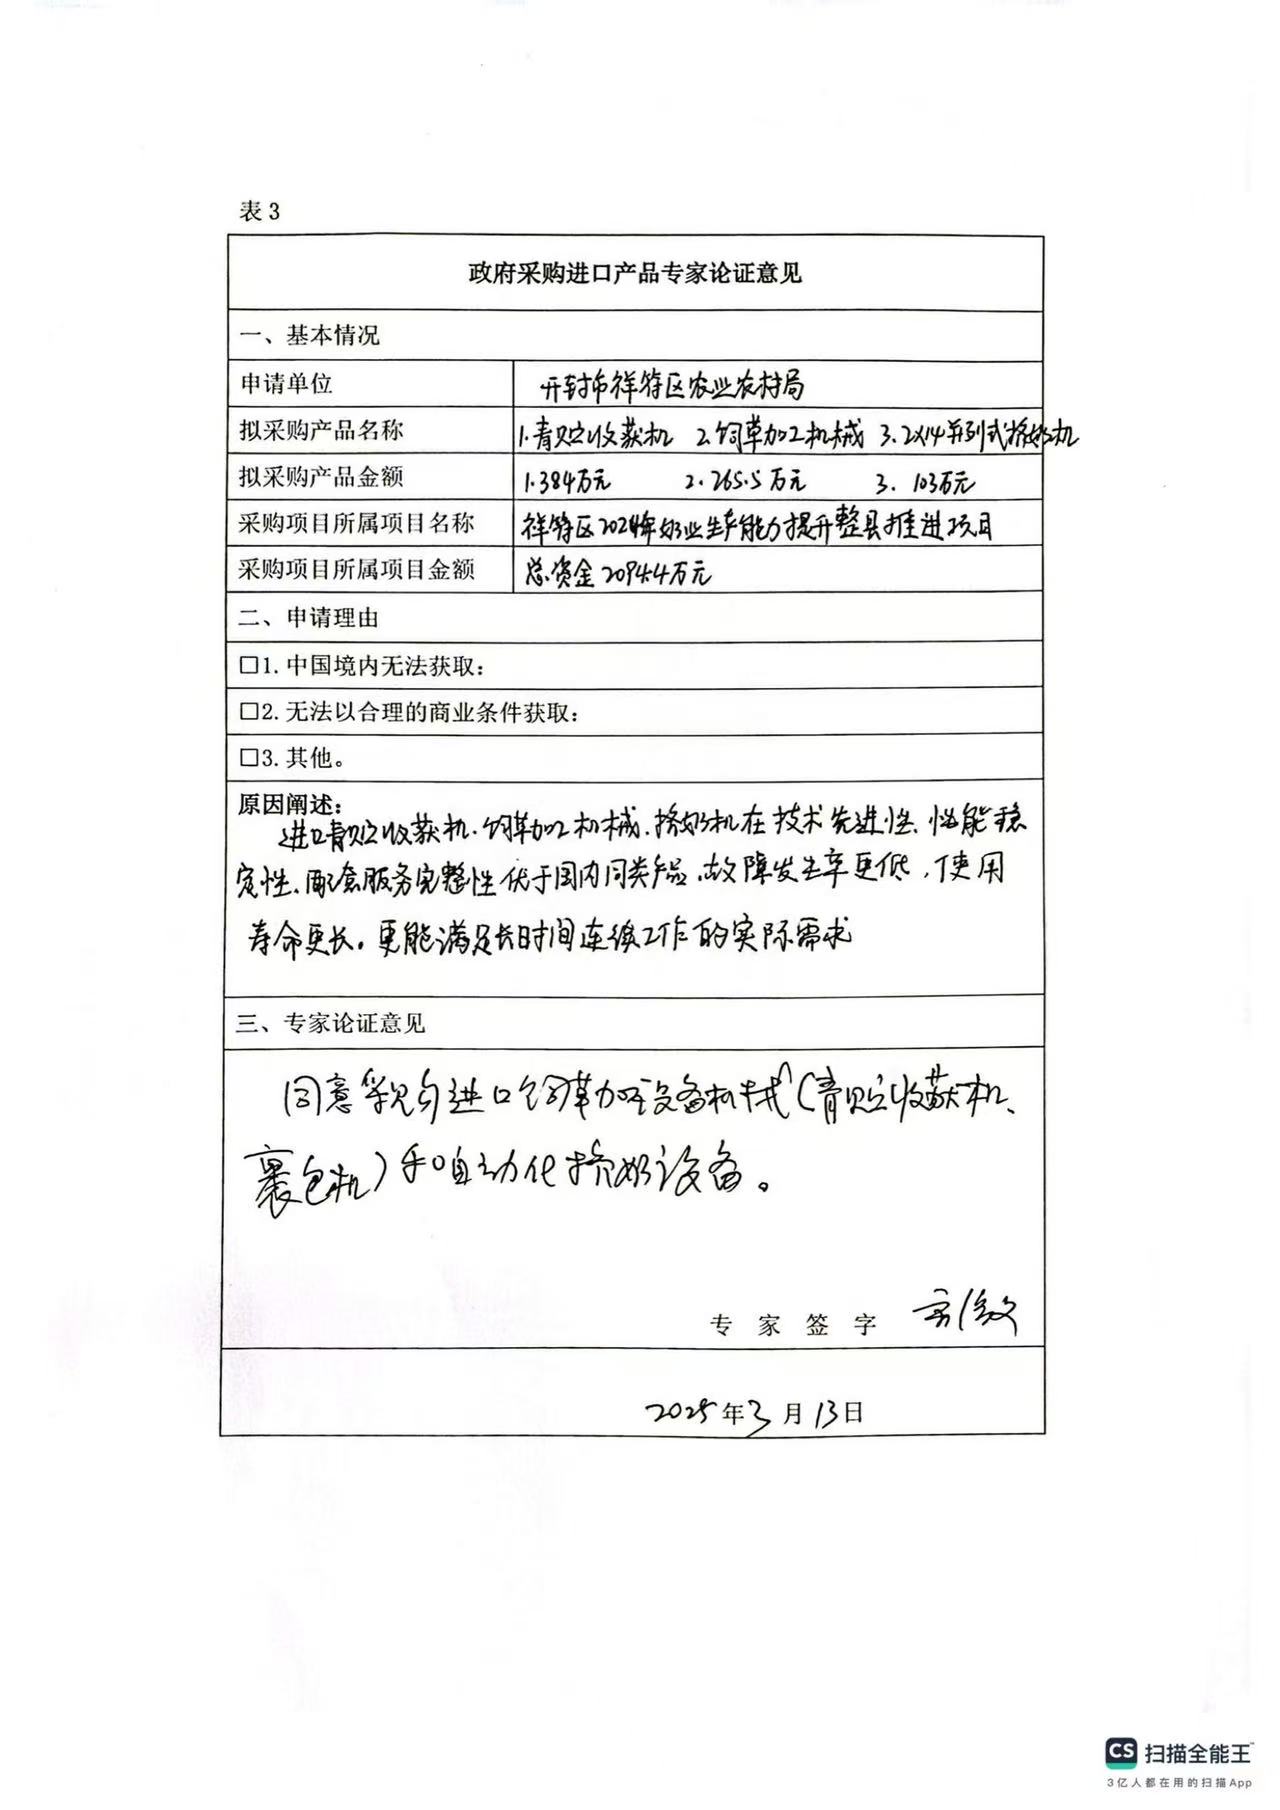 表 3
政府采购进口产品专家论证意见
一、基本情况
申请单位 开封市祥符区农业农村局
拟采购产品名称 1.青贮收获机 2.饲草加工机械 3.2X14并列式挤奶机
拟采购产品金额 1.384万元 2.265.5万元 3.103万元
采购项目所属项目名称 祥符区2024年奶业生产能力提升整县推进项目
采购项目所属项目金额 总资金2094.4万元
二、申请理由
□1.中国境内无法获取：
□2.无法以合理的商业条件获取：
□3.其他。
原因阐述：
进口青贮收获机、饲草加工机械、挤奶机在技术先进性、性能稳
定性、配套服务完整性优于国内同类产品，故障发生率更低，使用
寿命更长。更能满足长时间连续工作的实际需求
三、专家论证意见
同意采购进口饲草加工设备机械（青贮收获机、
裹包机）和自动化挤奶设备。
专 家 签 字
2025年3月13日
CS 扫描全能王
3亿人都在用的扫描App